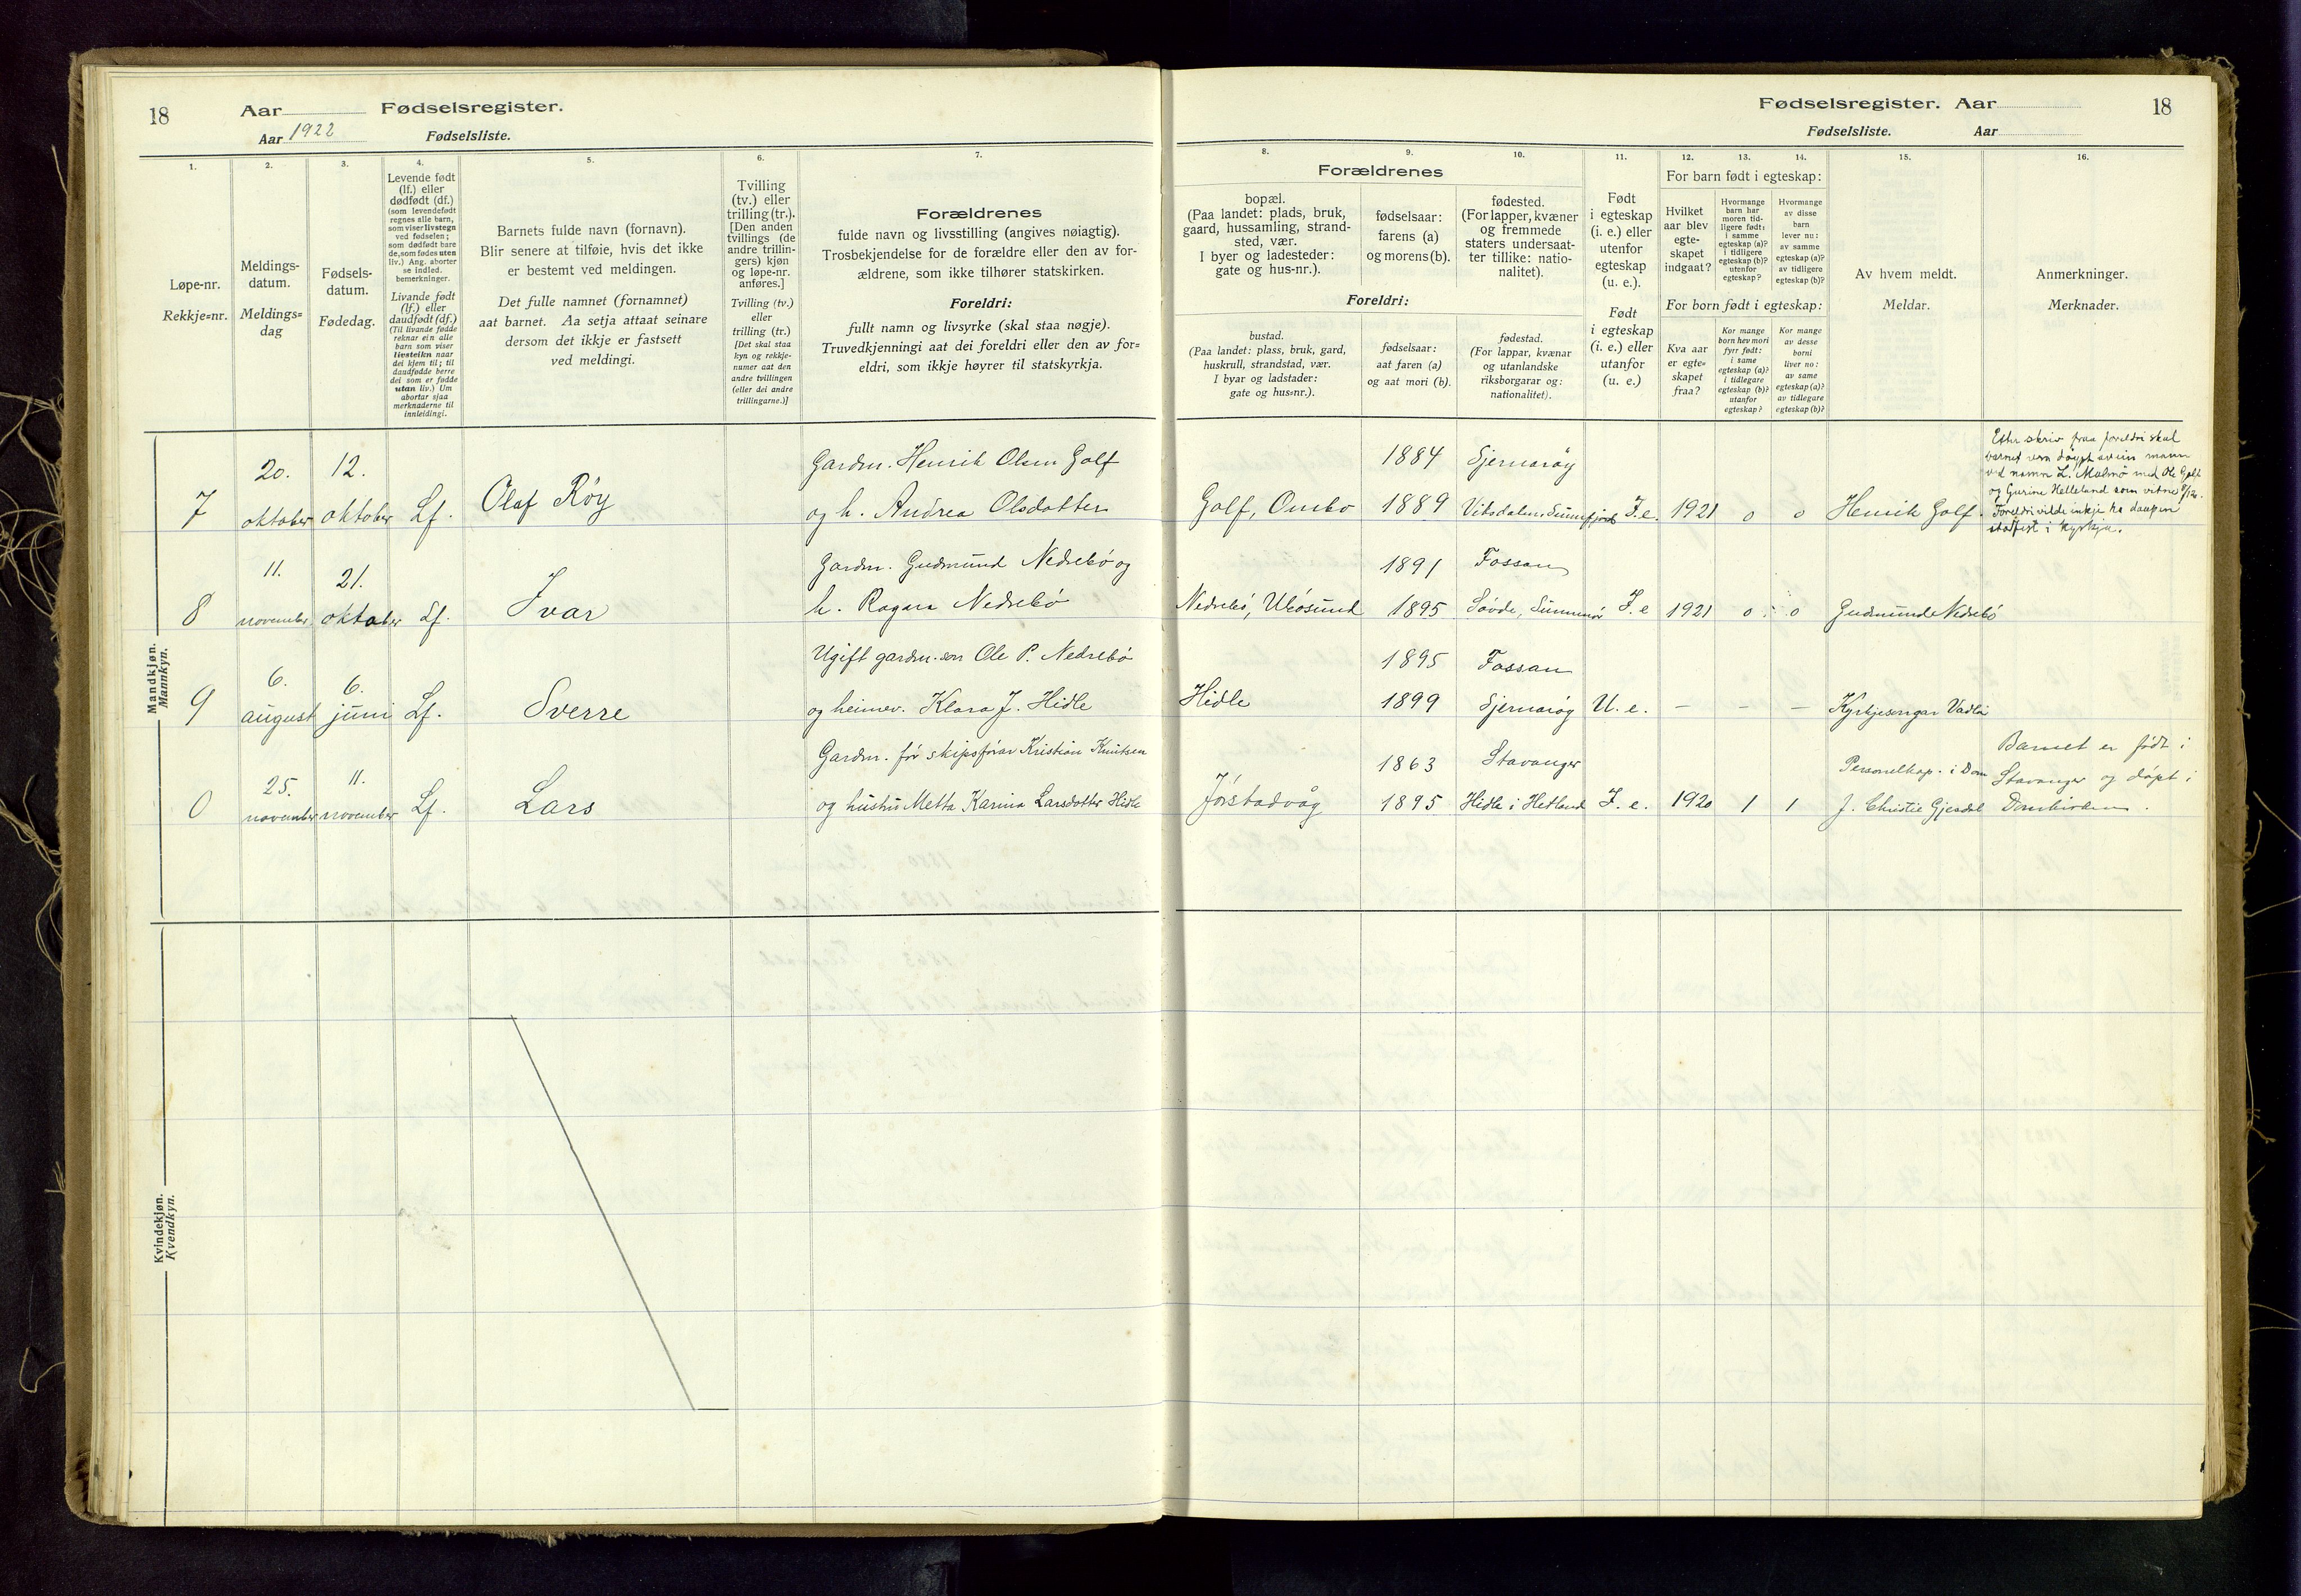 18
Aar
Fødselsregister.
Aar 1922
Fødselsliste.
Fødselsregister. Aar
18
Fødselsliste.
Aar
1.
Løpe-nr.
Rekkje-nr.
2.
Meldings-
datum.
Meldings-
dag
3.
Fødsels-
datum.
Fødedag.
4.
Levende født
(lf.) eller
dødfødt (df.)
(som levendefødt
regnes alle barn,
som viser livstegn
ved fødselen;
som dødfødt bare
de, som fødes uten
liv.) Ang. aborter
se indled.
bemerkninger.
Livande født
(lf.) eller
daudfødt (df.)
(Til livande fødde
reknar ein alle
barn som viser
livsteikn naar
dei kjem til; til
daudfødde berre
dei som er fødde
utan liv.) Um
abortar sjaa
merknaderne til
innleidingi.
5.
Barnets fulde navn (fornavn).
Blir senere at tilføie, hvis det ikke
er bestemt ved meldingen.
Det fulle namnet (fornamnet)
aat barnet. Aa setja attaat seinare
dersom det ikkje er fastsett
ved meldingi.
6.
Tvilling
(tv.) eller
trilling (tr.).
[Den anden
tvillings (de
andre trillin-
gers) kjøn
og løpe-nr.
anføres.]
Tvilling (tv.)
eller
trilling (tr.)
[Det skal staa
kyn og rekkje-
numer aat den
andre tvillingen
(eller dei andre
trillingarne.)]
7.
Forældrenes
fulde navn og livsstilling (angives nøiagtig).
Trosbekjendelse for de forældre eller den av for-
ældrene, som ikke tilhører statskirken.
Foreldri:
fullt namn og livsyrke (skal staa nøgje).
Truvedkjenningi aat dei foreldri eller den av for-
eldri, som ikkje høyrer til statskyrkja.
Forældrenes
8.
bopæl.
(Paa landet: plads, bruk,
gaard, hussamling, strand-
sted, vær.
I byer og ladesteder:
gate og hus-nr.).
Foreldri:
bustad.
(Paa landet: plass, bruk, gard,
huskrull, strandstad, vær.
I byar og ladstader:
gate og hus-nr.).
9.
fødselsaar:
farens (a)
og morens (b).
fødselsaar:
aat faren (a)
og aat mori (b).
10.
fødested.
(For lapper, kvæner
og fremmede
staters undersaat-
ter tillike: natio-
nalitet).
fødestad.
(For lappar, kvænar
og utanlandske
riksborgarar og:
nationalitet).
11.
Født
i egteskap
(i. e.) eller
utenfor
egteskap
(u. e.).
Født
i egteskap
(i. e.) eller
utanfor
(u. e.)
For barn født i egteskap:
12.
Hvilket
aar blev
egte-
skapet
indgaat?
For born født i egteskap:
Kva aar
er egte-
skapet
fraa?
13.
Hvormange
barn har
moren tid-
ligere født:
i samme
egteskap (a)?
i tidligere
egteskap (b)?
utenfor
egteskap?
Kor mange
born hev mori
fyrr født:
i same
egteskap (a)?
i tidlegare
egteskap (b)?
utanfor
egteskap?
14.
Hvormange
av disse
barn
lever nu:
av samme
egteskap (a)?
av tidligere
egteskap (b)?
Kor mange
av desse
borni
liver no:
av same
egteskap (a)?
av tidlegare
egteskap (b)?
15.
Av hvem meldt.
Meldar.
16.
Anmerkninger.
Merknader.
Mandkjøn.
Mannkyn.
7
20.
oktober
12.
oktober
Lf.
Olaf Röy
Gardm. Henrik Olsen Golf
og h. Andrea Olsdotter
Golf, Ombo
1884
1889
Sjernarøy
Vibsdalen, Sunnfjord
I. e.
1921
0
0
Henrik Golf.
Etter skriv fraa foreldri skal
barnet vera døypt av ein mann
ved namn L. Malmø med Ole Golf
og Gurine Helleland som vitne 8/12.
Foreldri vilde inkje ha daapen
stadfest i kyrkja.
8
11.
november
21.
oktober
Lf.
Ivar
Gardm. Gudmund Nedrebö og
h. Ragna Nedrebö
Nedrebö, Ubösund
1891
1895
Fossan
Sövde, Sunnmör
I. e
1921
0
0
Gudmund Nedrebö
9
6.
august
6.
juni
Lf.
Sverre
Ugift gardm.son Ole P. Nedrebö
og heimev. Klara J. Hidle
Hidle
1895
1899
Fossan
Sjernarøy
U. e.
—
—
—
Kyrkjesongar Vadla
0
25.
november
11.
november
Lf.
Lars
Gardm. för skipsförar Kristian Knutsen
og hustru Metta Karina Larsdotter Hidle
Jörstadvåg
1863
1895
Stavanger
Hidle i Hetland
I. e.
1920
1
1
Personellkap. i Dom
J. Christie Gjesdal
Barnet er födt i
Stavanger og döpt i
Domkirken.
Kvindekjøn.
Kvendkyn.